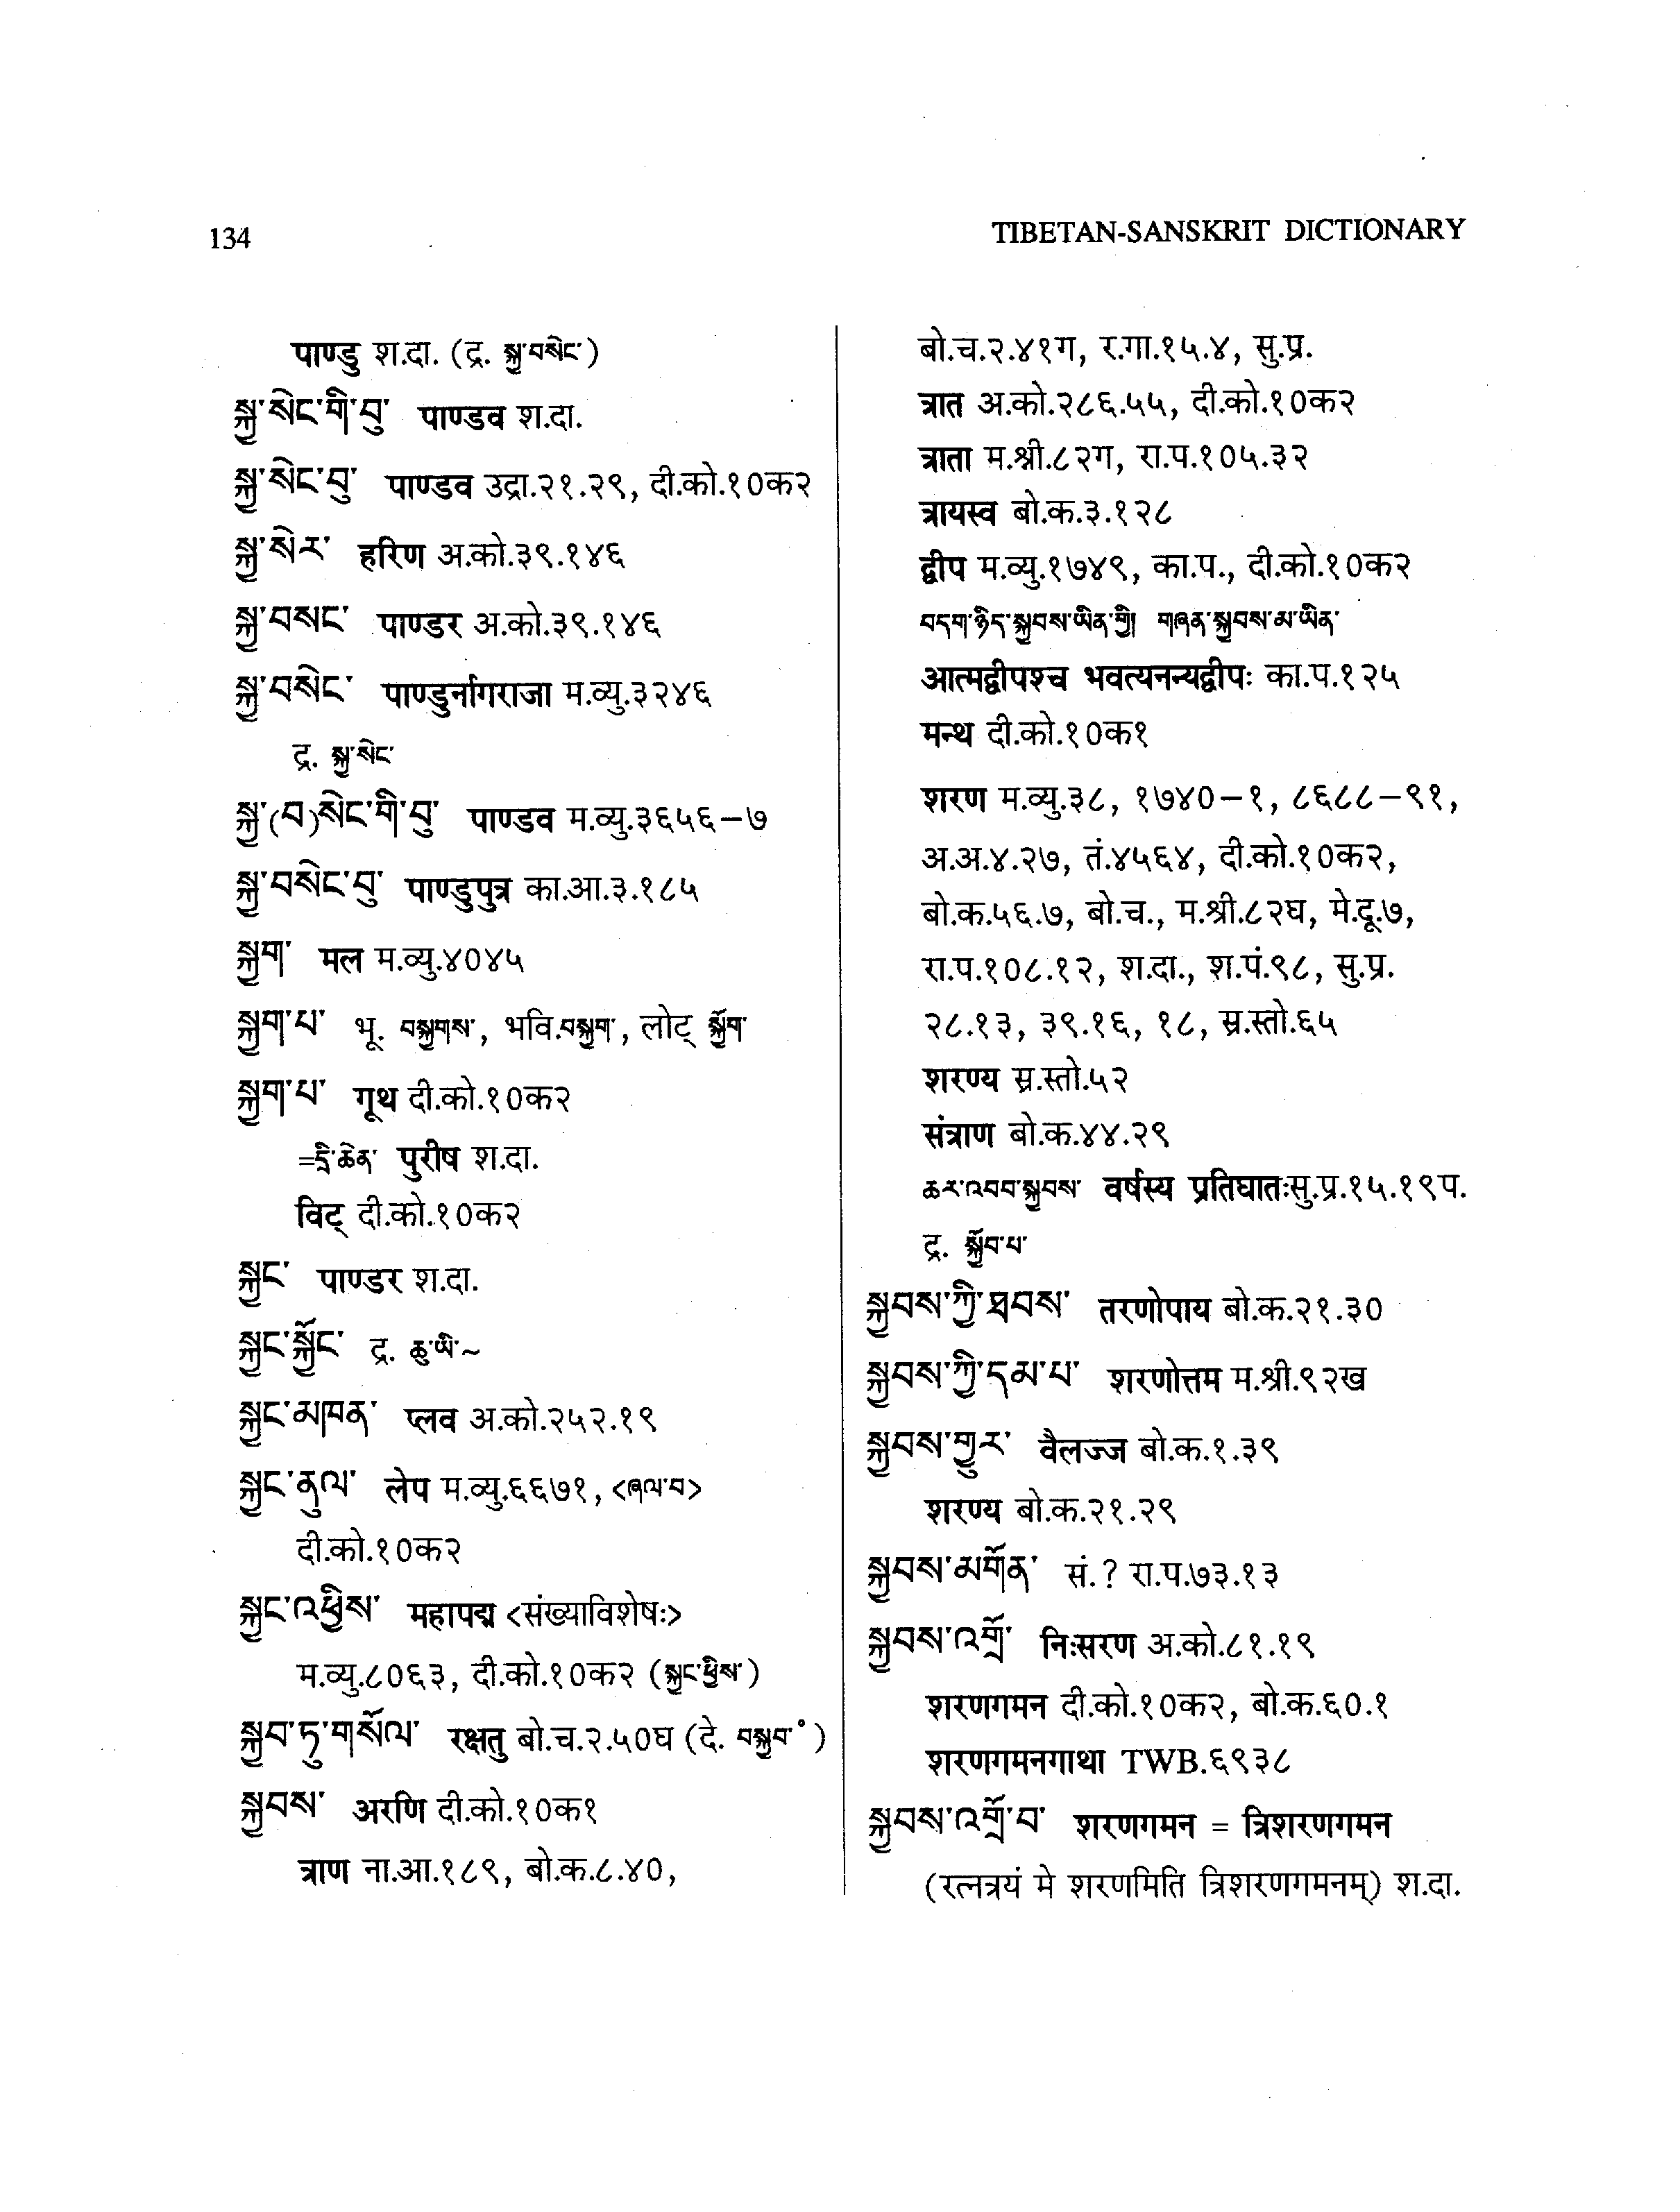 134
TIBETAN-SANSKRIT DICTIONARY
पाण्डु श.दा. (द्र. སྐྱ་བསེང་)
སྐྱ་སེང་གི་བུ་ पाण्डव श.दा.
སྐྱ་སེང་བུ་ पाण्डव उद्रा.२१.२९, दी.को.१०क२
སྐྱ་སེར་ हरिण अ.को.३९.१४६
སྐྱ་བསང་ पाण्डर अ.को.३९.१४६
སྐྱ་བསེང་ पाण्डुर्नागराजा म.व्यु.३२४६
द्र. སྐྱ་སེང་
སྐྱ་(བ)སེང་གི་བུ་ पाण्डव म.व्यु.३६५६-७
སྐྱ་བསེང་བུ་ पाण्डुपुत्र का.आ.३.१८५
སྐྱག་ मल म.व्यु.४०४५
སྐྱག་པ་ भू. བསྐྱགས་, भवि.བསྐྱག་, लोट् སྐྱོག་
སྐྱག་པ་ गूथ दी.को.१०क२
=དྲི་ཆེན་ पुरीष श.दा.
विट् दी.को.१०क२
སྐྱང་ पाण्डर श.दा.
སྐྱང་སྐྱོང་ द्र. ཆུ་ཡི་~
སྐྱང་མཁན་ प्लव अ.को.२५२.१९
སྐྱང་ནུལ་ लेप म.व्यु.६६७१, <ཞལ་བ>
दी.को.१०क२
སྐྱང་འཕྱིས་ महापद्म <संख्याविशेषः>
म.व्यु.८०६३, दी.को.१०क२ (སྐྱང་ཕྱིས་)
སྐྱབ་ཏུ་གསོལ་ रक्षतु बो.च.२.५०घ (दे. བསྐྱབ་°)
སྐྱབས་ अरणि दी.को.१०क१
त्राण ना.आ.१८९, बो.क.८.४०,
बो.च.२.४१ग, र.गा.१५.४, सु.प्र.
त्रात अ.को.२८६.५५, दी.को.१०क२
त्राता म.श्री.८२ग, रा.प.१०५.३२
त्रायस्व बो.क.३.१२८
द्वीप म.व्यु.१७४९, का.प., दी.को.१०क२
བདག་ཉིད་སྐྱབས་ཡིན་གྱི། གཞན་སྐྱབས་མ་ཡིན་
आत्मद्वीपश्च भवत्यनन्यद्वीपः का.प.१२५
मन्थ दी.को.१०क१
शरण म.व्यु.३८, १७४०-१, ८६८८-९१,
अ.अ.४.२७, तं.४५६४, दी.को.१०क२,
बो.क.५६.७, बो.च., म.श्री.८२घ, मे.दू.७,
रा.प.१०८.१२, श.दा., श.पं.९८, सु.प्र.
२८.१३, ३९.१६, १८, स्र.स्तो.६५
शरण्य स्र.स्तो.५२
संत्राण बो.क.४४.२९
ཆར་འབབ་སྐྱབས་ वर्षस्य प्रतिघातःसु.प्र.१५.१९प.
द्र. སྐྱོབ་པ་
སྐྱབས་ཀྱི་ཐབས་ तरणोपाय बो.क.२१.३०
སྐྱབས་ཀྱི་དམ་པ་ शरणोत्तम म.श्री.९२ख
སྐྱབས་གྱུར་ वैलज्ज बो.क.१.३९
शरण्य बो.क.२१.२९
སྐྱབས་མགོན་ सं.? रा.प.७३.१३
སྐྱབས་འགྲོ་ निःसरण अ.को.८१.१९
शरणगमन दी.को.१०क२, बो.क.६०.१
शरणगमनगाथा TWB.६९३८
སྐྱབས་འགྲོ་བ་ शरणगमन = त्रिशरणगमन
(रत्नत्रयं मे शरणमिति त्रिशरणगमनम्) श.दा.